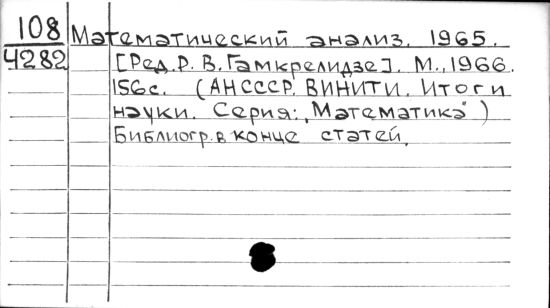 108 Математический анализ. 1965.
4282 [Ред. Р. В. Гамкрелидзе]. М., 1966.
156с. (АН СССР. ВИНИТИ. Итоги
науки. Серия: "Математика")
Библиогр. в конце статей.